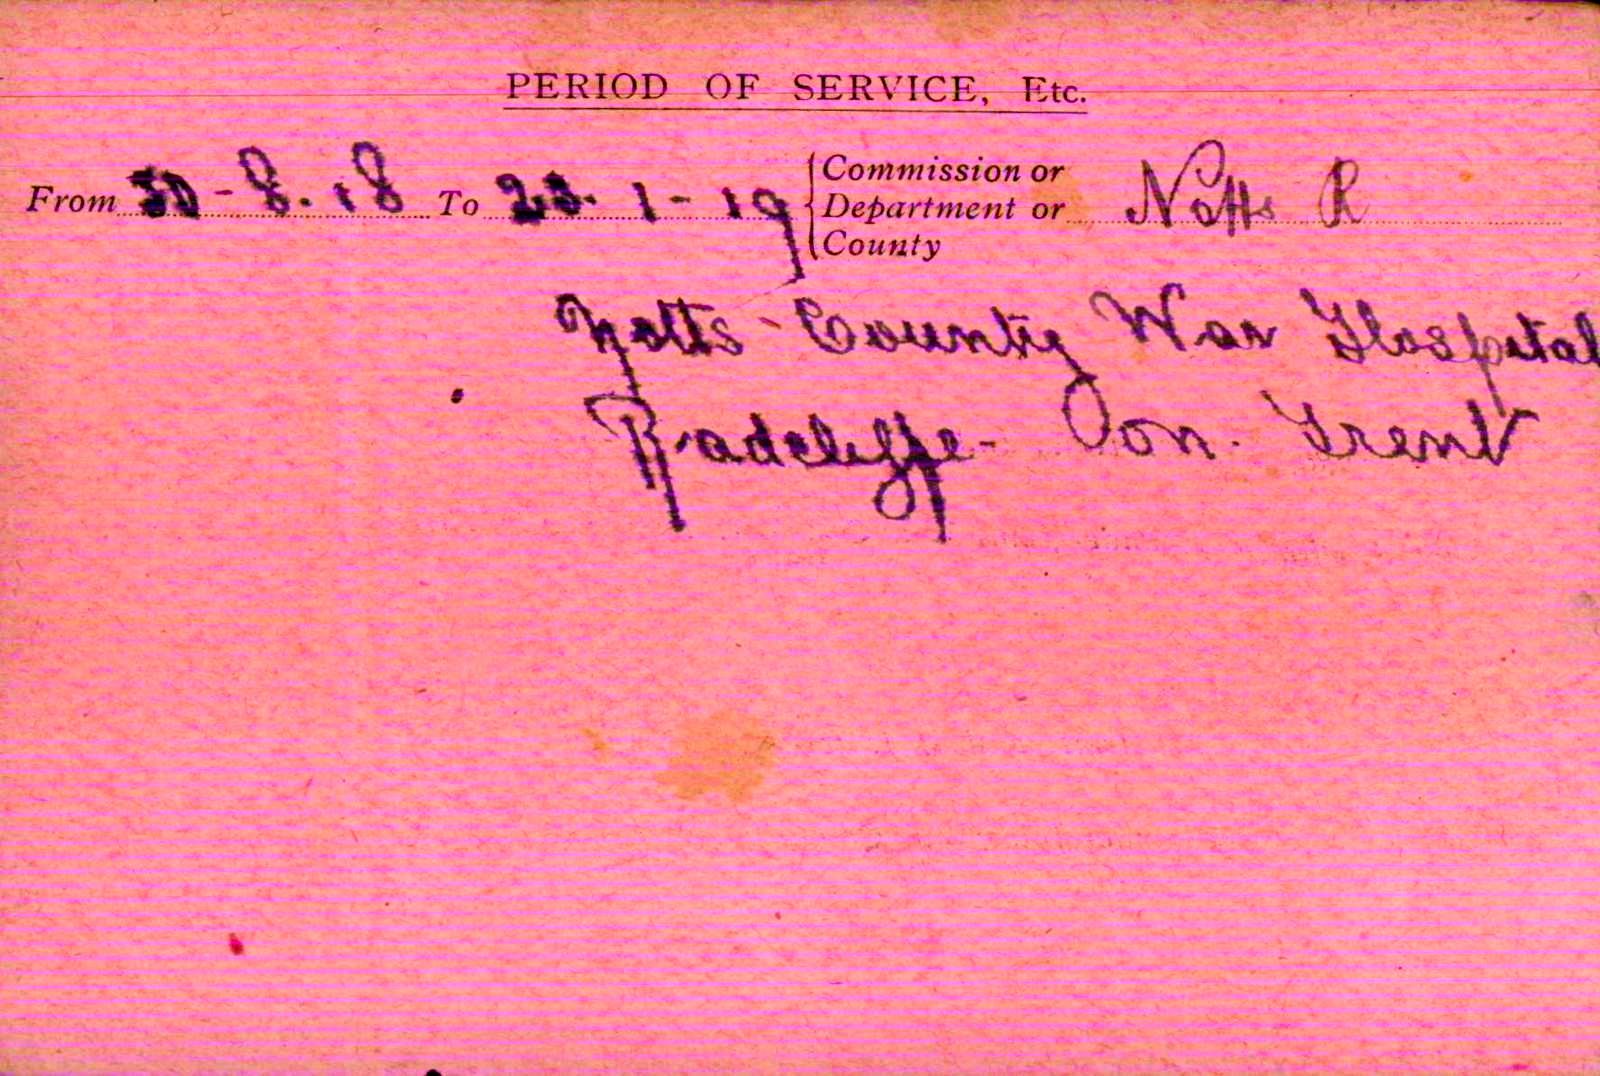 PERIOD OF SERVICE, Etc.
From 30-8.18 To 23.1-19 Commission or Department or County Notts R
Notts County War Hospital
Radcliffe- On. Trent